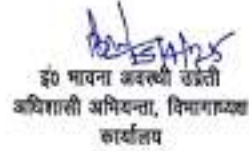 इं० भावना अवस्थी उप्रेती
अधिशासी अभियन्ता, विभागाध्यक्ष
कार्यालय